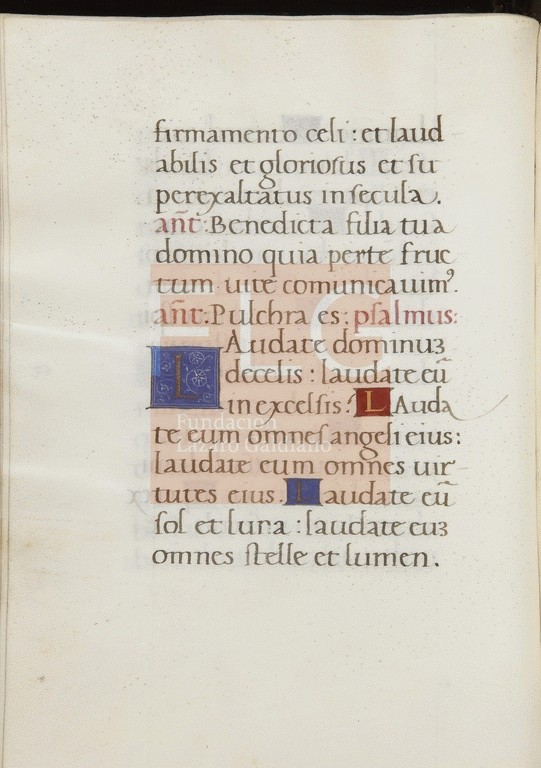 firmamento celi : et laud
abilis et gloriosus et su
perexaltatus in secula.
añt: Benedicta filia tua
domino quia perte fruc
tum uite comunicauimꝰ.
añt: Pulchra es: psalmus:
LAudate dominuꝫ
decelis : laudate eū
in excelsis: LAuda
te eum omnes angeli eius:
laudate eum omnes uir
tutes eius. Laudate eū
sol et luna : laudate euꝫ
omnes stelle et lumen.
FLG
Fundación
Lázaro Galdiano